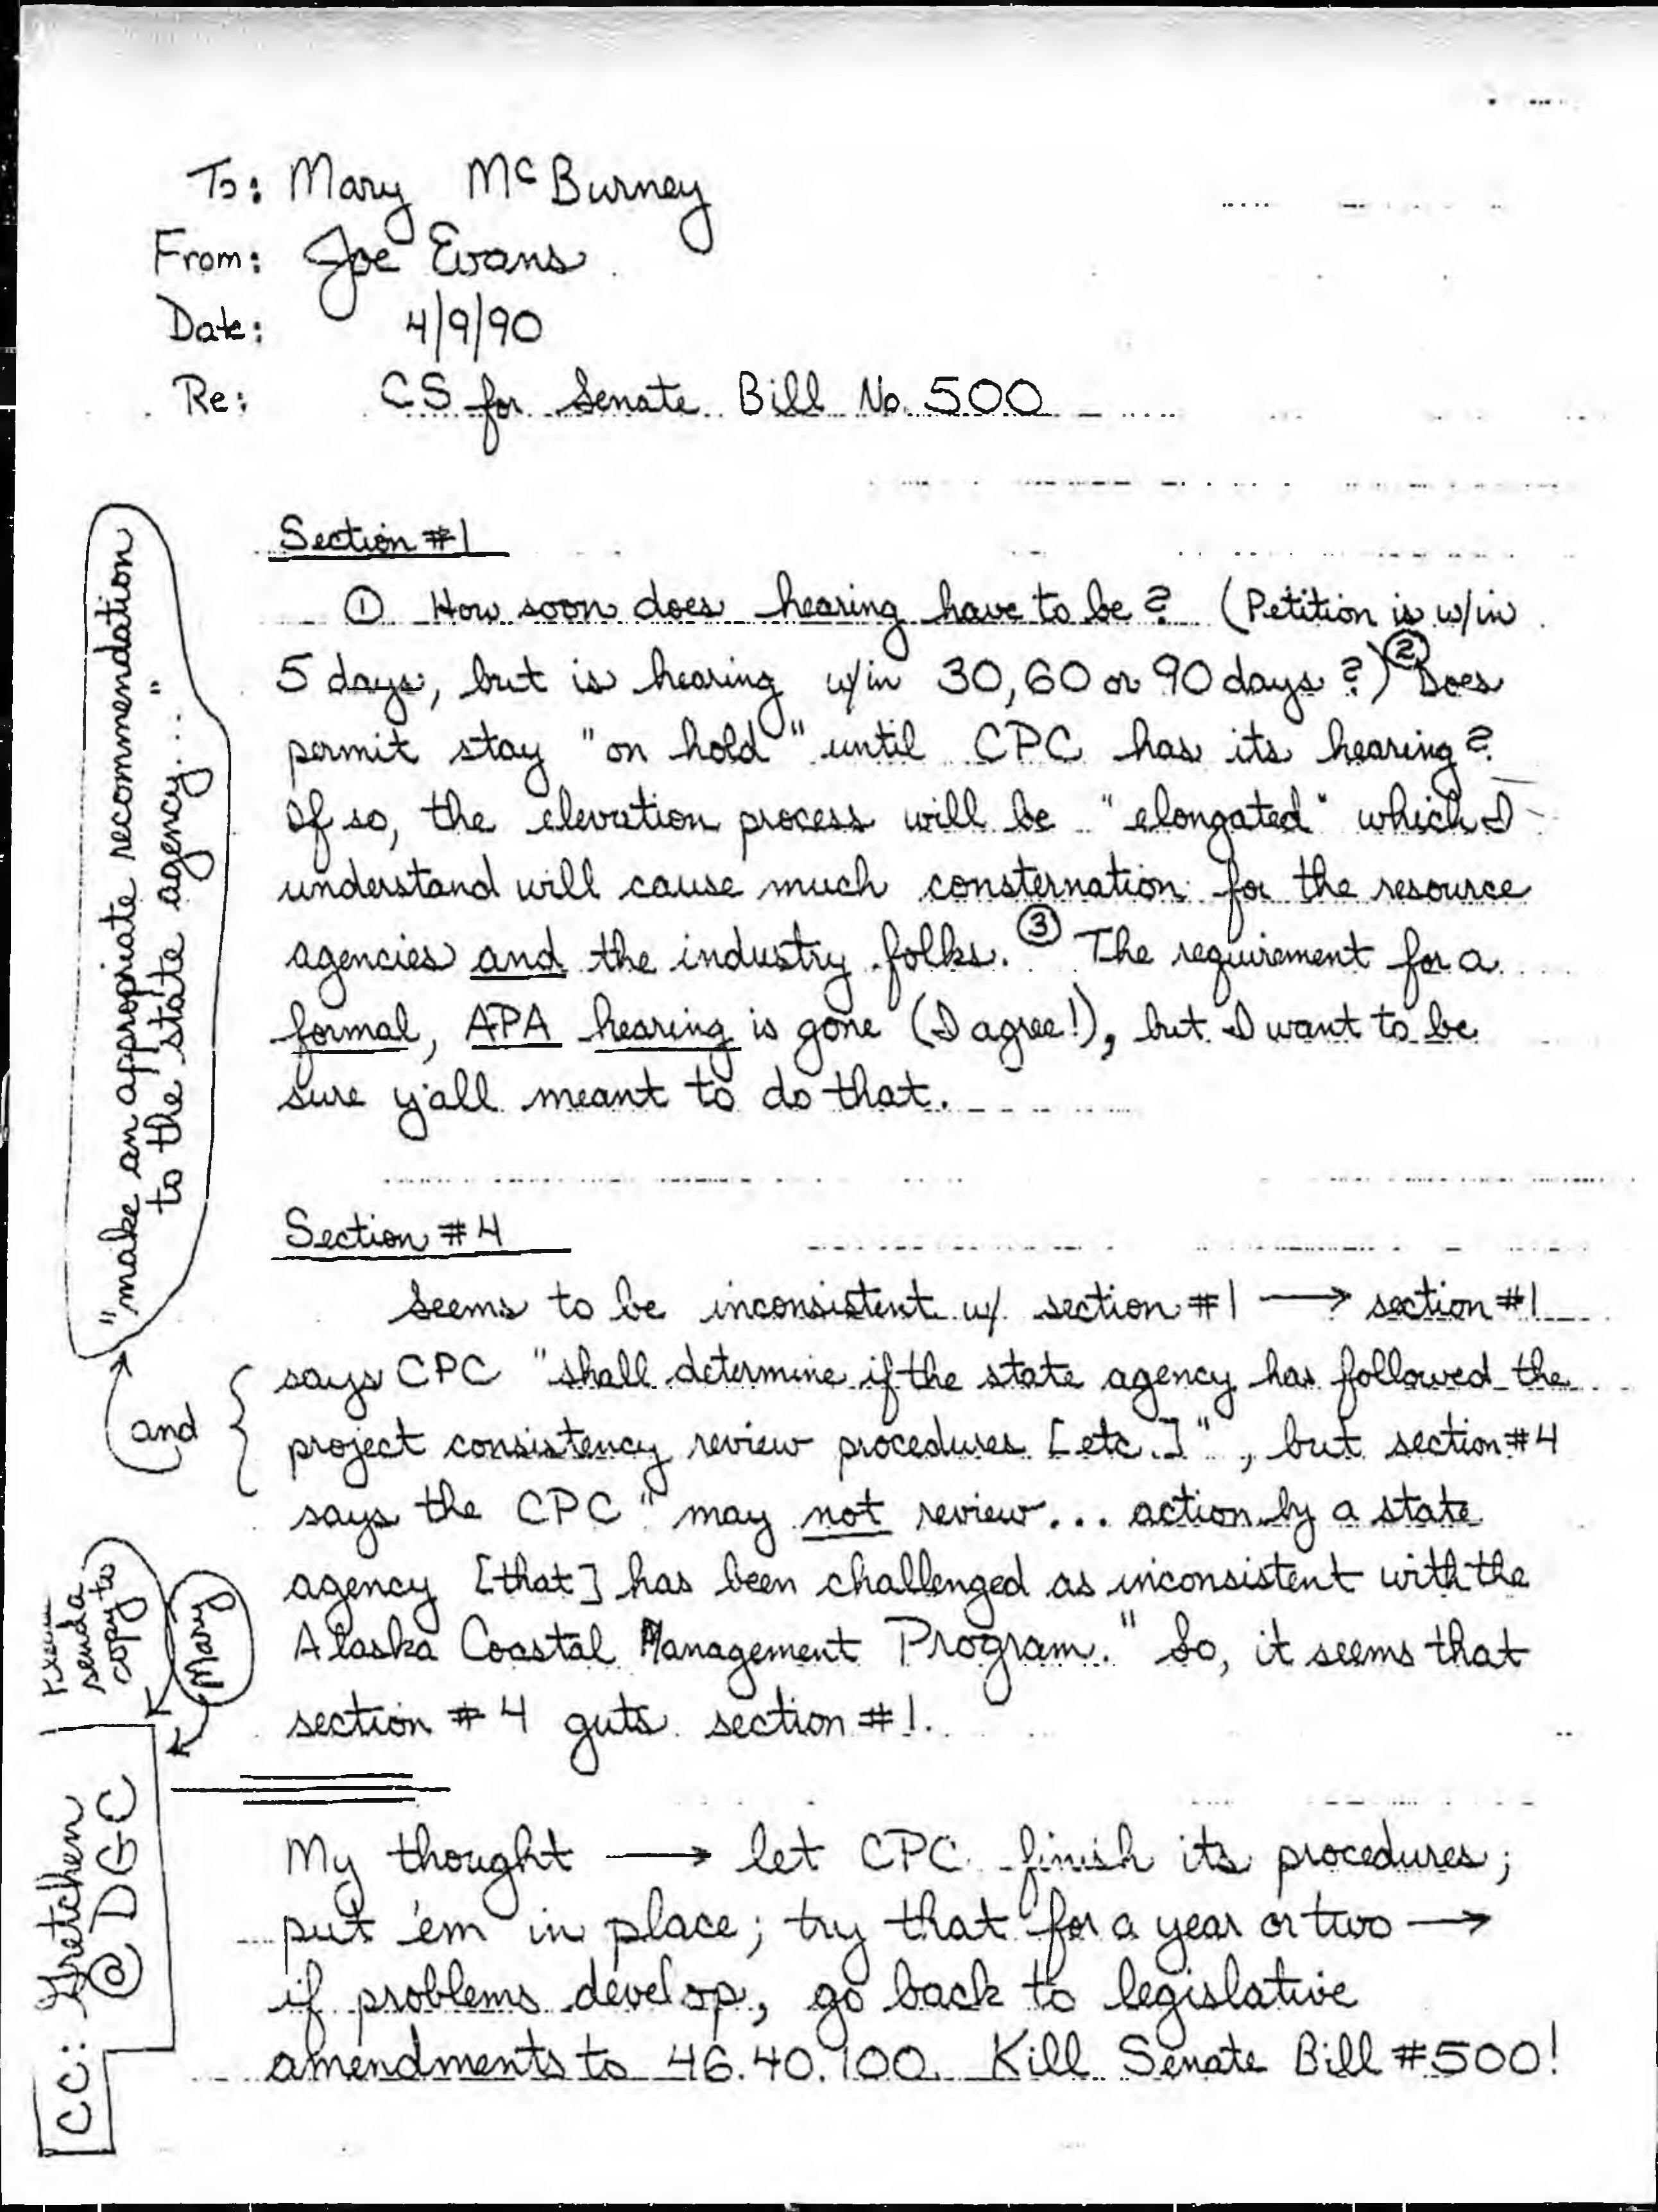 To: Mary McBurney
From: Joe Evans
Date: 4/9/90
Re: CS for Senate Bill No. 500
Section #1
① How soon does hearing have to be? (Petition is w/in
5 days, but is hearing w/in 30, 60 or 90 days?) ② Does
permit stay "on hold" until CPC has its hearing?
If so, the elevation process will be "elongated" which I
understand will cause much consternation for the resource
agencies and the industry folks. ③ The requirement for a
formal, APA hearing is gone (I agree!), but I want to be
sure y'all meant to do that.
Section #4
Seems to be inconsistent w/ section #1 → section #1
says CPC "shall determine if the state agency has followed the
project consistency review procedures [etc.]", but section #4
says the CPC "may not review... action by a state
agency [that] has been challenged as inconsistent with the
Alaska Coastal Management Program." So, it seems that
section #4 guts section #1.
My thought → let CPC finish its procedures;
put 'em in place; try that for a year or two →
if problems develop, go back to legislative
amendments to 46.40.100. Kill Senate Bill #500!
and
"make an appropriate recommendation
to the state agency...."
send a
copy to
Mary
cc: Gretchen
@ DGC